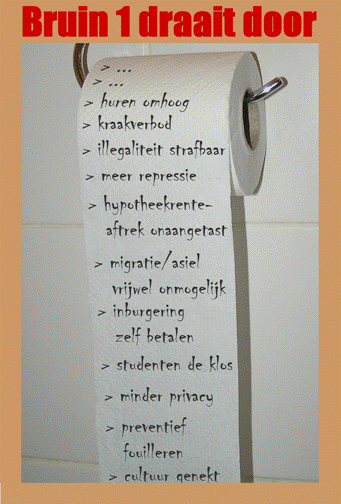 Bruin 1 draait door
> ...
> ...
> huren omhoog
> kraakverbod
> illegaliteit strafbaar
> meer repressie
> hypotheekrente-
aftrek onaangetast
> migratie/asiel
vrijwel onmogelijk
> inburgering
zelf betalen
> studenten de klos
> minder privacy
> preventief
fouilleren
> cultuur genekt